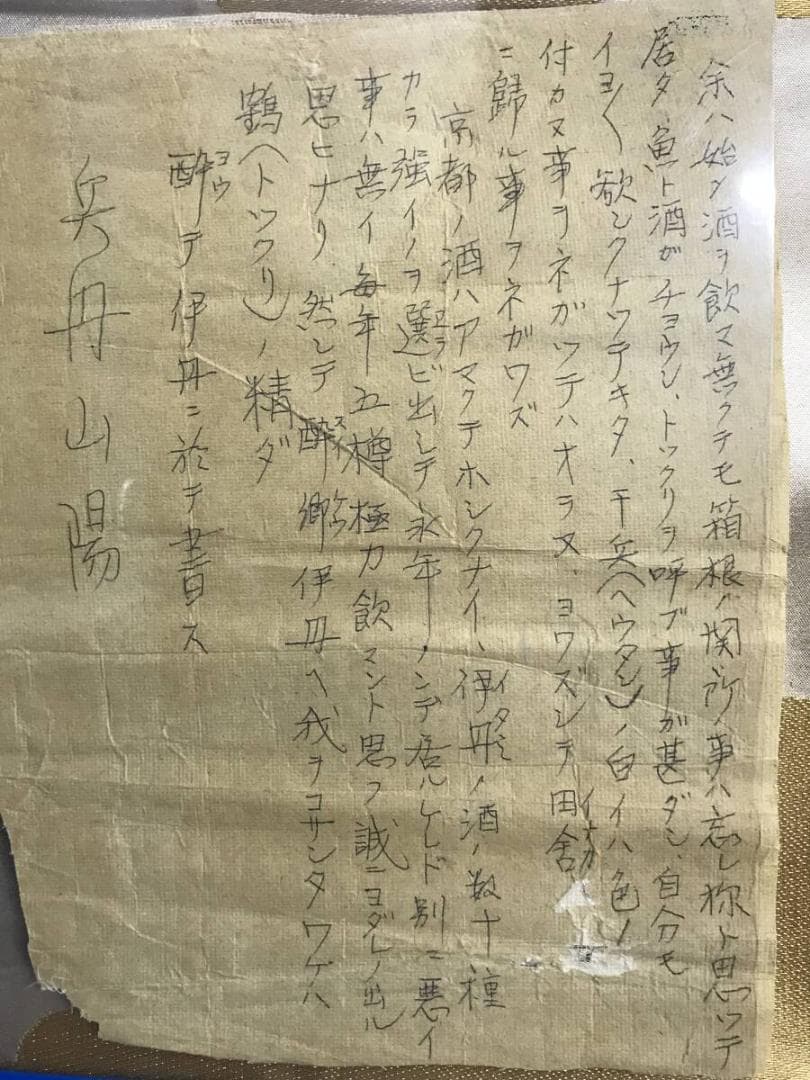 余ハ始メ酒ヲ飲マ無クテモ箱根ノ関所ノ事ハ忘レ様ト思ツテ
居タ、魚ト酒ガチョウシ、トックリヲ呼ブ事が甚ダシ、自分モ
イヨ〱欲シクナツテキタ、干兵(ヘウタン)ノ白イハ色ノ
付カヌ事ヲネガツテハオラヌ、ヨワズシテ田舎イナカ
ニ歸ル事ヲネガワズ
京都ノ酒ハアマクテホシクナイ、伊丹イタミノ酒ノ数十種
カラ強イノヲ選エラビ出シテ永年ノンデ居ルケレド別ニ悪イ
事ハ無イ毎年五樽極力飲マント思フ誠ニヨダレノ出ル
思ヒナリ、然シテ酔郷スイケウ伊丹ヘ我ヲコサンタワケハ
鶴(トックリ)ノ精ダ
酔ヨウテ伊丹ニ於テ書ス
兵丹山陽